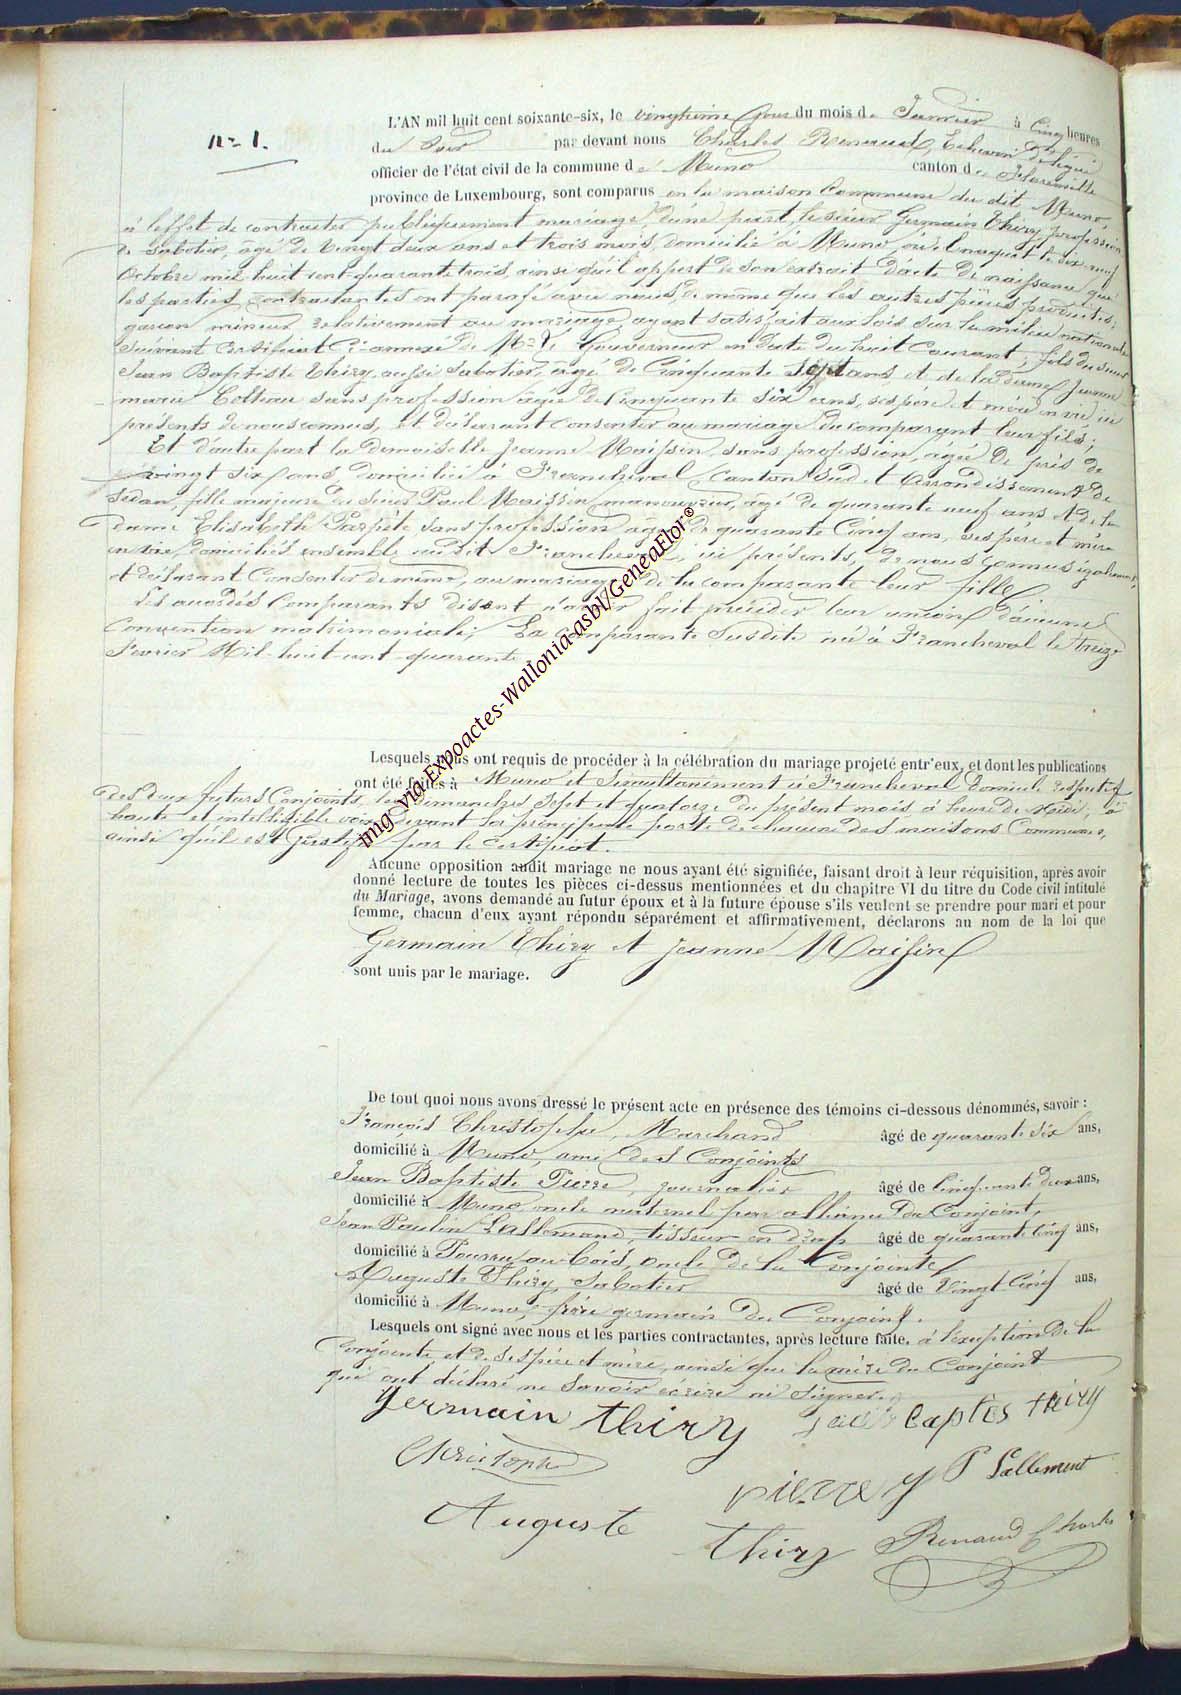 n° 1.
L'AN mil huit cent soixante-six, le vingtième jour du mois de Janvier à Cinq heures
du soir par devant nous Charles Renaud, Echevin Délégué
officier de l'état civil de la commune de Muno canton de Florenville
province de Luxembourg, sont comparus en la maison Commune du dit Muno,
à l'effet de contracter publiquement mariage, d'une part, le sieur Germain Thiry, profession
de sabotier, âgé de vingt deux ans et trois mois, domicilié à Muno, où il naquit le dix neuf
Octobre mil huit cent quarante trois, ainsi qu'il appert de son extrait d'acte de naissance que
les parties contractantes ont parafé avec nous de même que les autres pièces produites;
garçon mineur relativement au mariage, ayant satisfait aux lois sur la milice nationale
suivant certificat ci-annexé de Mr le Gouverneur en date du huit Courant; fils du sieur
Jean Baptiste Thiry, aussi sabotier, âgé de Cinquante sept ans et de la dame Jeanne
marie Colleau sans profession âgée de Cinquante six ans, ses père et mère en vie ici
présents de nous connus, et déclarant consentir au mariage du comparant leur fils;
Et d'autre part la demoiselle Jeanne Maissin, sans profession, agée de près de
vingt six ans domiciliée à Francheval, Canton Sud et Arrondissement de
Sedan, fille majeure du sieur Paul Maissin manouvrier, âgé de quarante neuf ans et de la
dame Elisabeth sans profession âgée de quarante Cinq ans, ses père et mère
en vie, domiciliés ensemble audit Francheval, ici présents, de nous Connus également,
et déclarant Consentir de même, au mariage de la comparante leur fille
Les accordés Comparants disent n'avoir fait précéder leur union d'aucune
Convention matrimoniale; La Comparante susdite née à Francheval le treize
Février Mil-huit-cent-quarante.
Lesquels nous ont requis de procéder à la célébration du mariage projeté entr'eux, et dont les publications
ont été faites à Muno et Simultanément à Francheval Domicile respectif
des deux futurs Conjoints, les Dimanches Sept et quatorze du présent mois à heure de Midi, à
haute et intelligible voix devant la principale porte de chacune des maisons Communes,
ainsi qu'il est Justifié par le certificat.
Aucune opposition audit mariage ne nous ayant été signifiée, faisant droit à leur réquisition, après avoir
donné lecture de toutes les pièces ci-dessus mentionnées et du chapitre VI du titre du Code civil intitulé
du Mariage, avons demandé au futur époux et à la future épouse s'ils veulent se prendre pour mari et pour
femme, chacun d'eux ayant répondu séparément et affirmativement, déclarons au nom de la loi que
Germain Thiry et Jeanne Maissin
sont unis par le mariage.
De tout quoi nous avons dressé le présent acte en présence des témoins ci-dessous dénommés, savoir :
François Christophe, Marchand âgé de quarante six ans,
domicilié à Muno, ami des Conjoints
Jean Baptiste Pierre, journalier âgé de Cinquante deux ans,
domicilié à Muno oncle maternel par alliance du Conjoint,
Jean Paulin Lallemand, tisseur en drap âgé de quarante cinq ans,
domicilié à Pourru-au-bois, oncle de la Conjointe,
Auguste Thiry, Sabotier âgé de Vingt Cinq ans,
domicilié à Muno, frère germain du Conjoint.
Lesquels ont signé avec nous et les parties contractantes, après lecture faite. à l'exception de la
Conjointe et de ses père et mère, ainsi que la mère du Conjoint
qui ont déclaré ne savoir écrire ni signer.
Germain thiry baptes thiry
Christophe
pierre J P Lallement
Auguste thiry Renaud Charles
img via Expoactes-Wallonia-asbl/GeneaFlor®